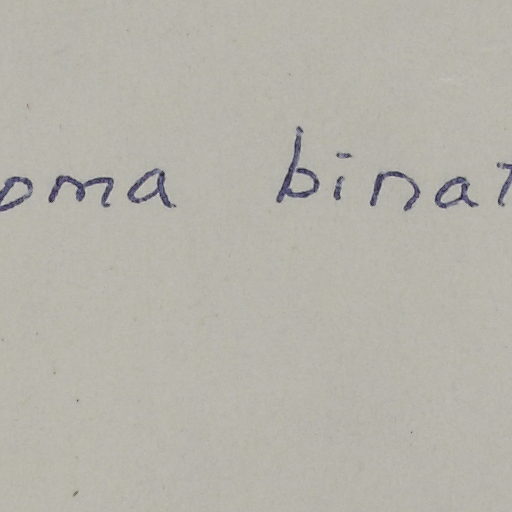 oma binat